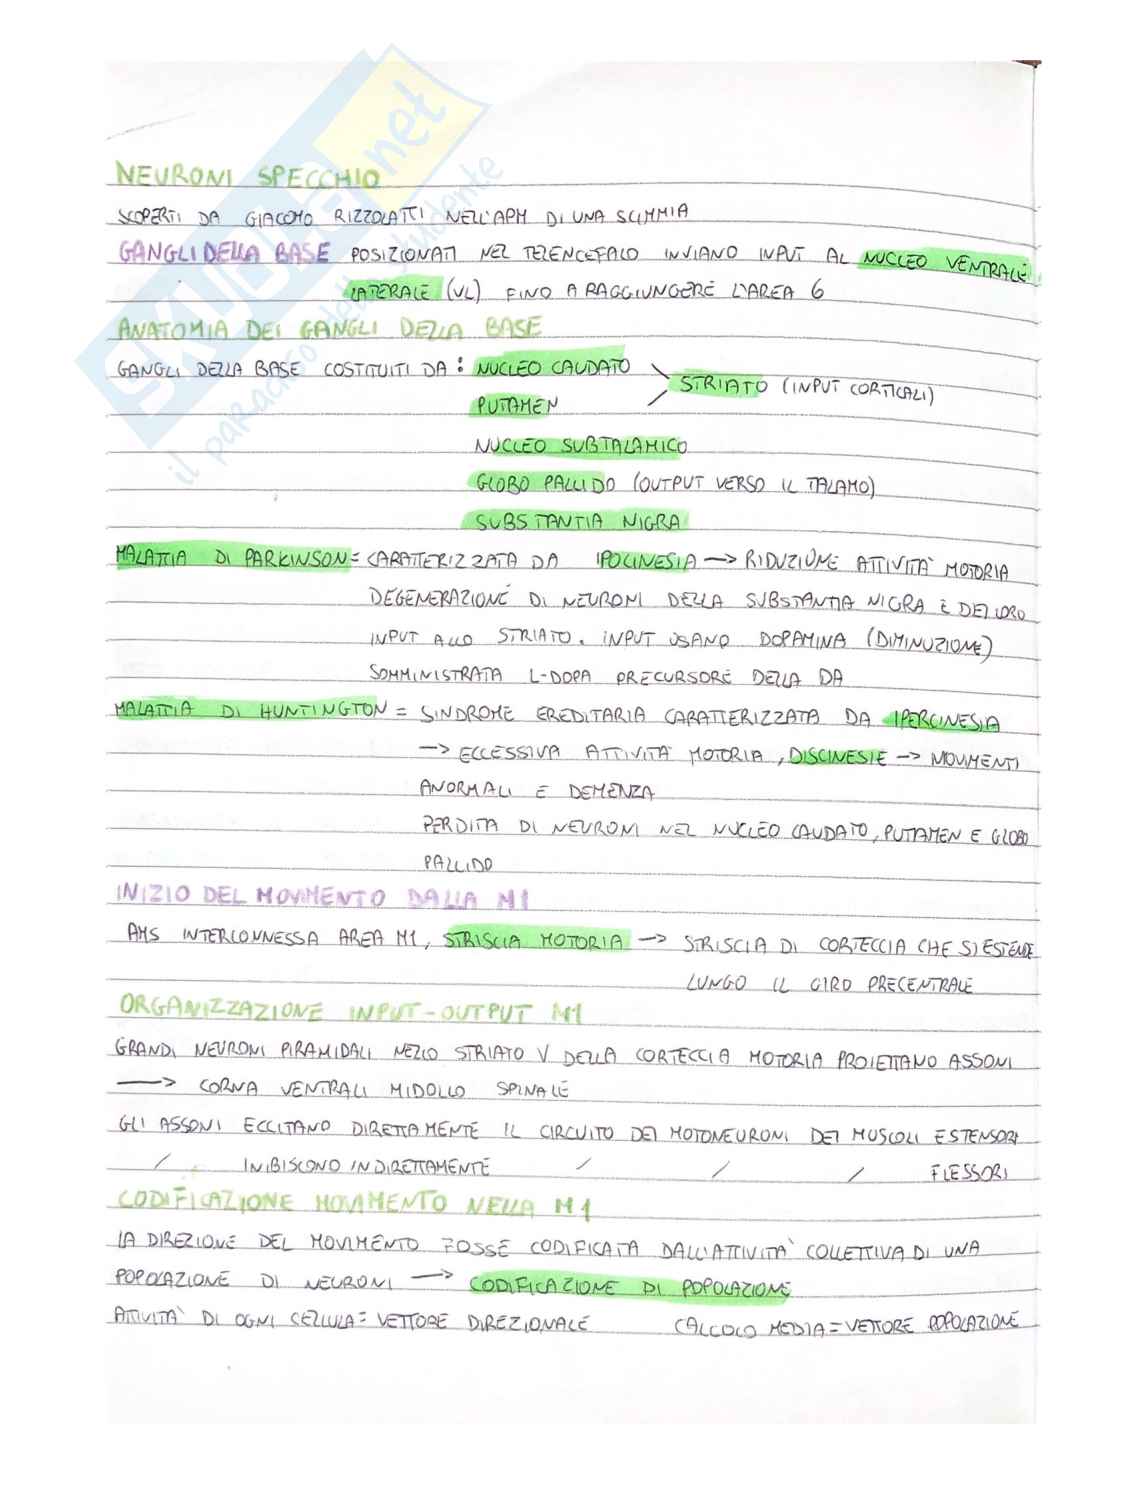 NEURONI SPECCHIO
SCOPERTI DA GIACOMO RIZZOLATTI NELL'APM DI UNA SCIMMIA
GANGLI DELLA BASE POSIZIONATI NEL TELENCEFALO INVIANO INPUT AL NUCLEO VENTRALE
LATERALE (VL) FINO A RAGGIUNGERE L'AREA 6
ANATOMIA DEI GANGLI DELLA BASE
GANGLI DELLA BASE COSTITUITI DA: NUCLEO CAUDATO
STRIATO (INPUT CORTICALI)
PUTAMEN
NUCLEO SUBTALAMICO
GLOBO PALLIDO (OUTPUT VERSO IL TALAMO)
SUBSTANTIA NIGRA
MALATTIA DI PARKINSON = CARATTERIZZATA DA IPOCINESIA —> RIDUZIONE ATTIVITÀ MOTORIA
DEGENERAZIONE DI NEURONI DELLA SUBSTANTIA NIGRA E DEI LORO
INPUT ALLO STRIATO. INPUT USANO DOPAMINA (DIMINUZIONE)
SOMMINISTRATA L-DOPA PRECURSORE DELLA DA
MALATTIA DI HUNTINGTON = SINDROME EREDITARIA CARATTERIZZATA DA IPERCINESIA
—> ECCESSIVA ATTIVITÀ MOTORIA, DISCINESIE —> MOVIMENTI
ANORMALI E DEMENZA
PERDITA DI NEURONI NEL NUCLEO CAUDATO, PUTAMEN E GLOBO
PALLIDO
INIZIO DEL MOVIMENTO DALLA M1
AMS INTERCONNESSA AREA M1, STRISCIA MOTORIA —> STRISCIA DI CORTECCIA CHE SI ESTENDE
LUNGO IL GIRO PRECENTRALE
ORGANIZZAZIONE INPUT-OUTPUT M1
GRANDI NEURONI PIRAMIDALI NELLO STRIATO V DELLA CORTECCIA MOTORIA PROIETTANO ASSONI
—> CORNA VENTRALI MIDOLLO SPINALE
GLI ASSONI ECCITANO DIRETTAMENTE IL CIRCUITO DEI MOTONEURONI DEI MUSCOLI ESTENSORI
/ INIBISCONO INDIRETTAMENTE / / / FLESSORI
CODIFICAZIONE MOVIMENTO NELLA M1
LA DIREZIONE DEL MOVIMENTO FOSSE CODIFICATA DALL'ATTIVITÀ COLLETTIVA DI UNA
POPOLAZIONE DI NEURONI —> CODIFICAZIONE DI POPOLAZIONE
ATTIVITÀ DI OGNI CELLULA = VETTORE DIREZIONALE CALCOLO MEDIA = VETTORE POPOLAZIONE
skuola.net
il paradiso dello studente